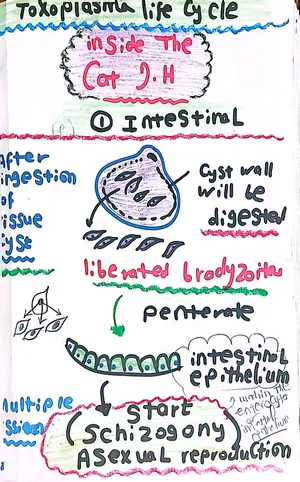 Toxoplasma life Cycle
inside The
Cat D.H
① Intestinal
After
ingestion
of
Tissue
Cyst
Cyst wall
will be
digested
liberated bradyzoites
penterate
intestinal
epithelium
within The
enterocytes
Multiple
ission
Start
Schizogony
Asexual reproduction